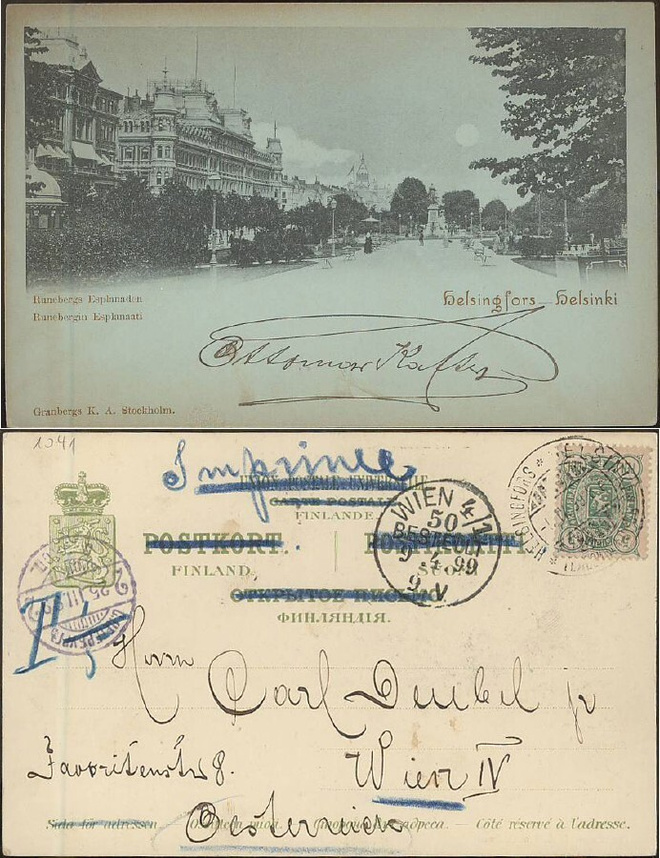 Runebergs Esplanaden
Runebergin Esplanaati
Helsingfors – Helsinki
Ottomar
Granbergs K. A. Stockholm.
1041
Imprimé
UNION POSTALE UNIVERSELLE
CARTE POSTALE
FINLANDE.
POSTKORT. POSTIKORTTI
FINLAND. SUOMI
ОТКРЫТОЕ ПИСЬМО
ФИНЛЯНДІЯ.
WIEN 4/1
50
BESTELLT
9 4 99
9 V
HELSINGFORS
25.III.
Herrn
Carl Deubel jr
Favoritenstr 8.
Wien IV
Oesterreich
Sida för adressen – Osoitteen puoli. – Сторона для адреса. – Côté réservé à l'adresse.